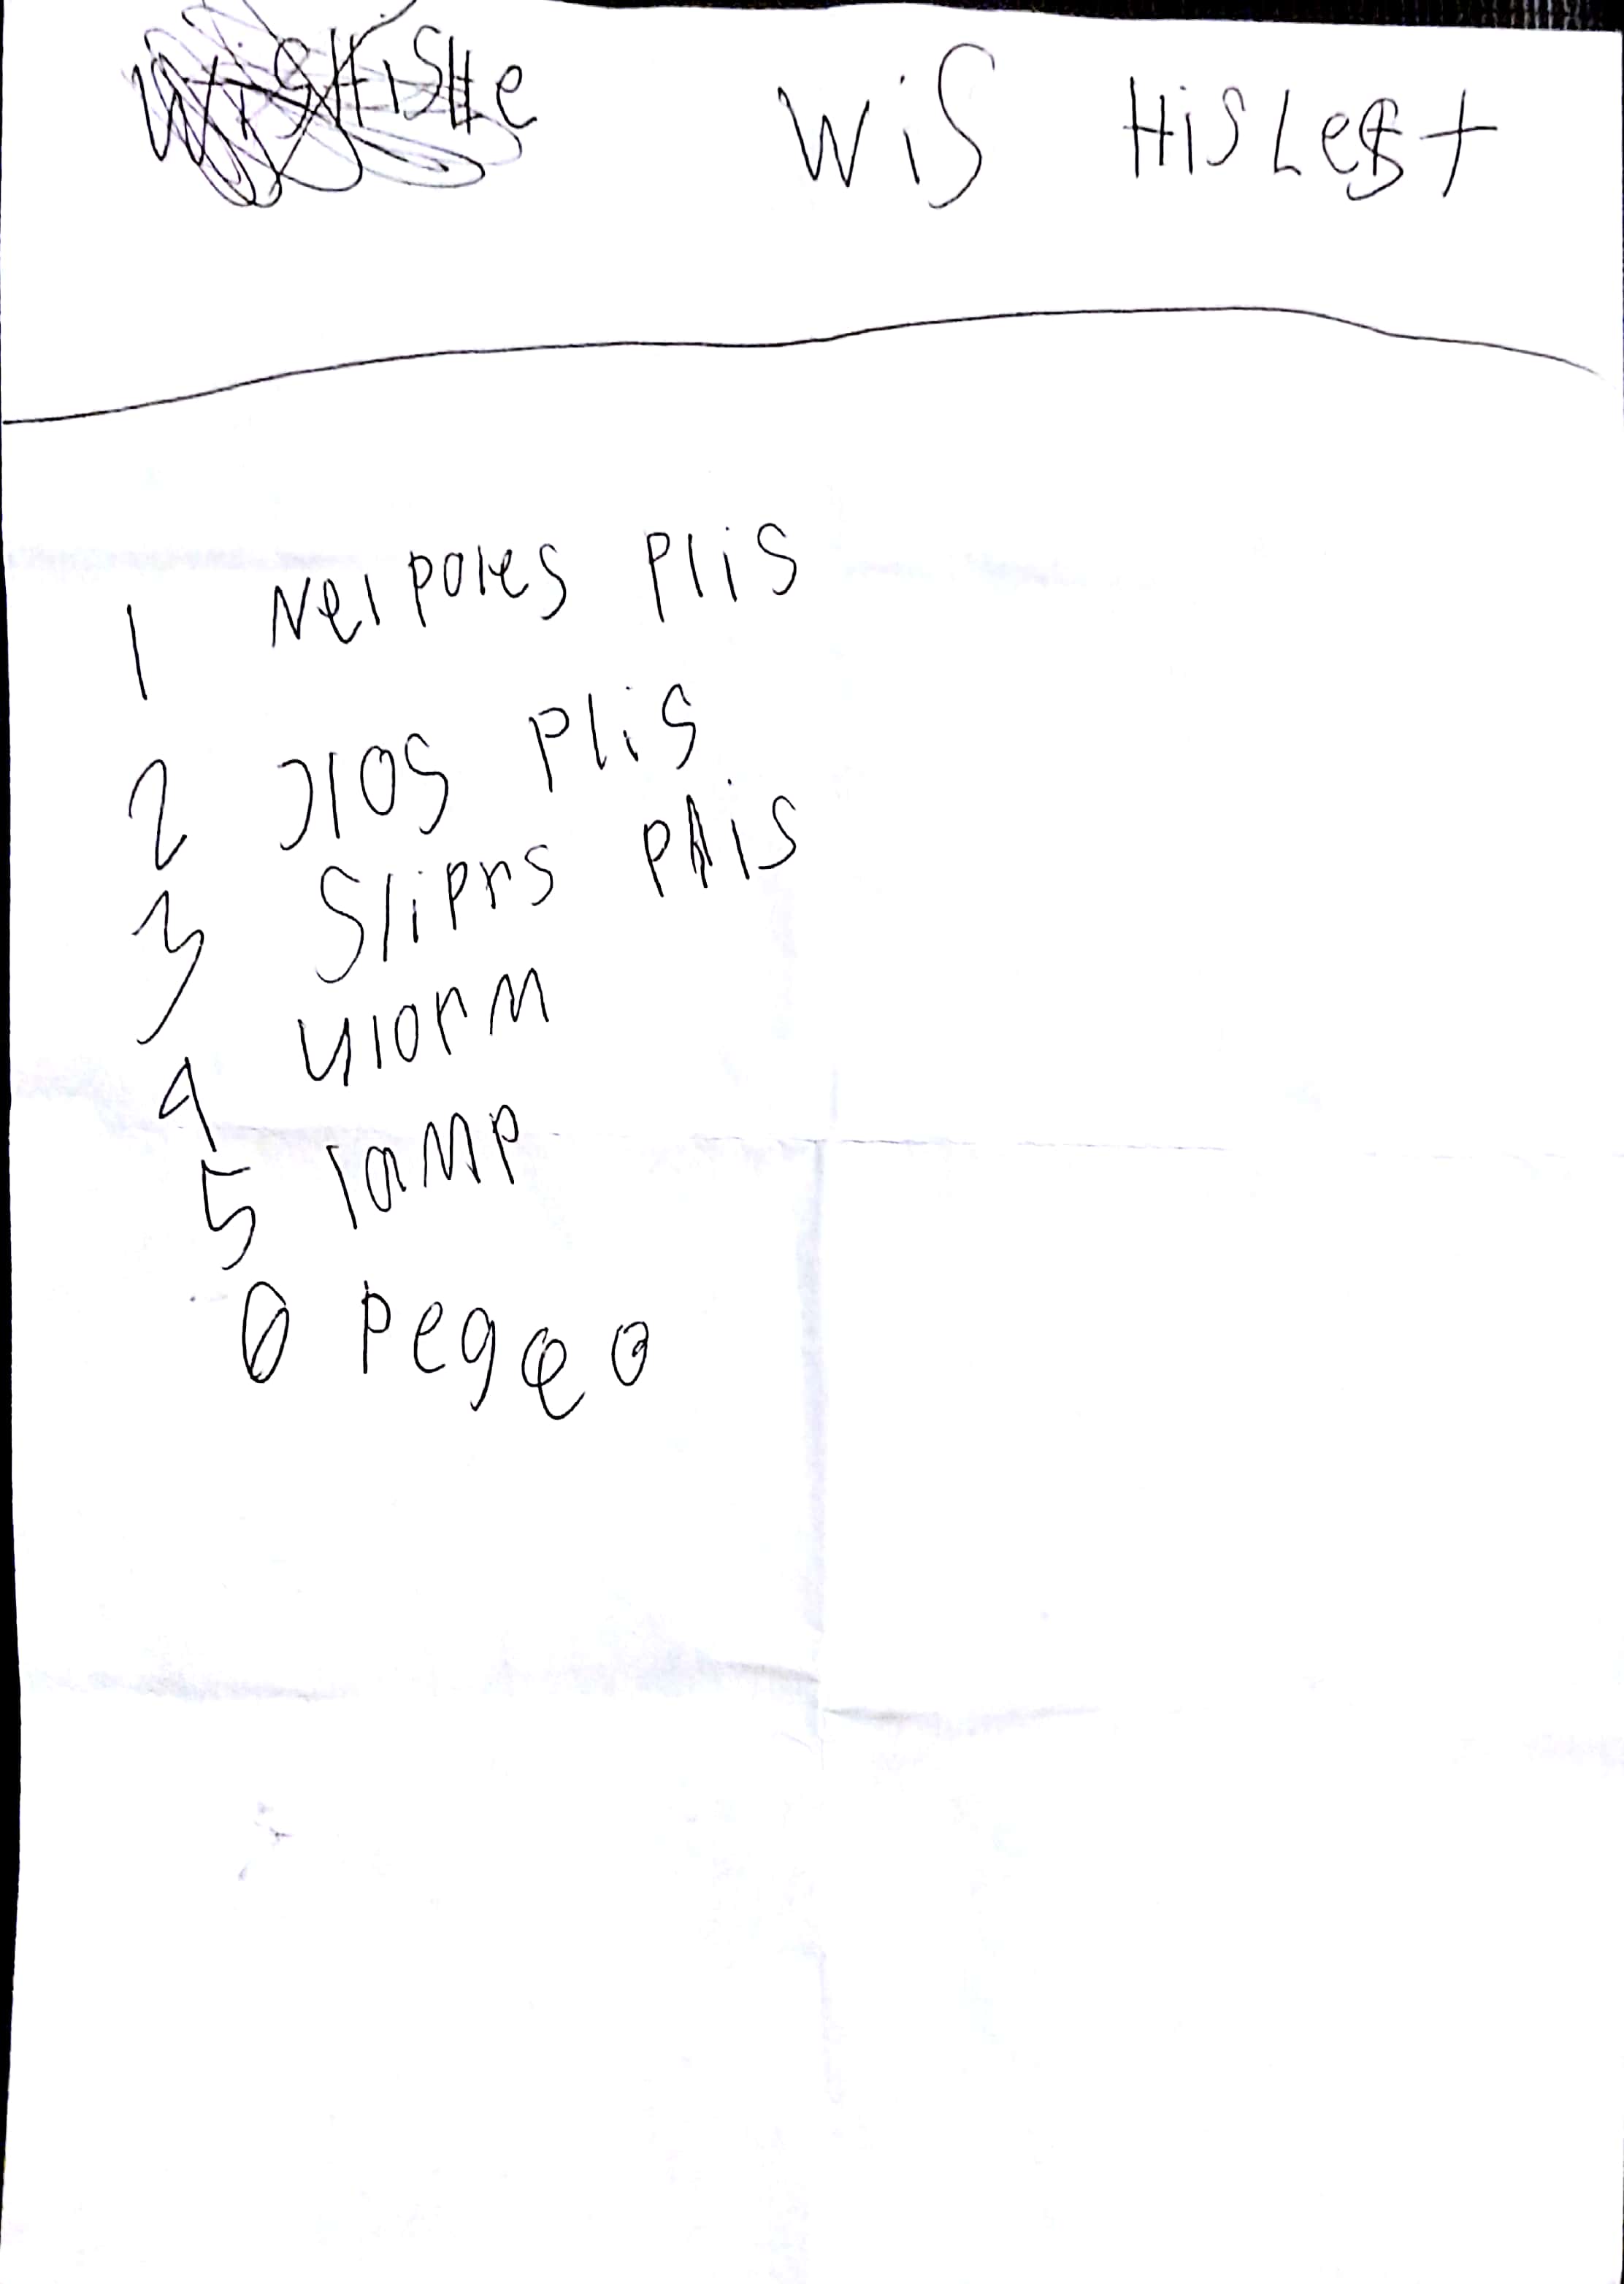 WiS HiSLest
1 Nelpoles PliS
2 JlOS PliS
3 Sliprs PliS
4 ulorm
5 lamp
0 Pegeo